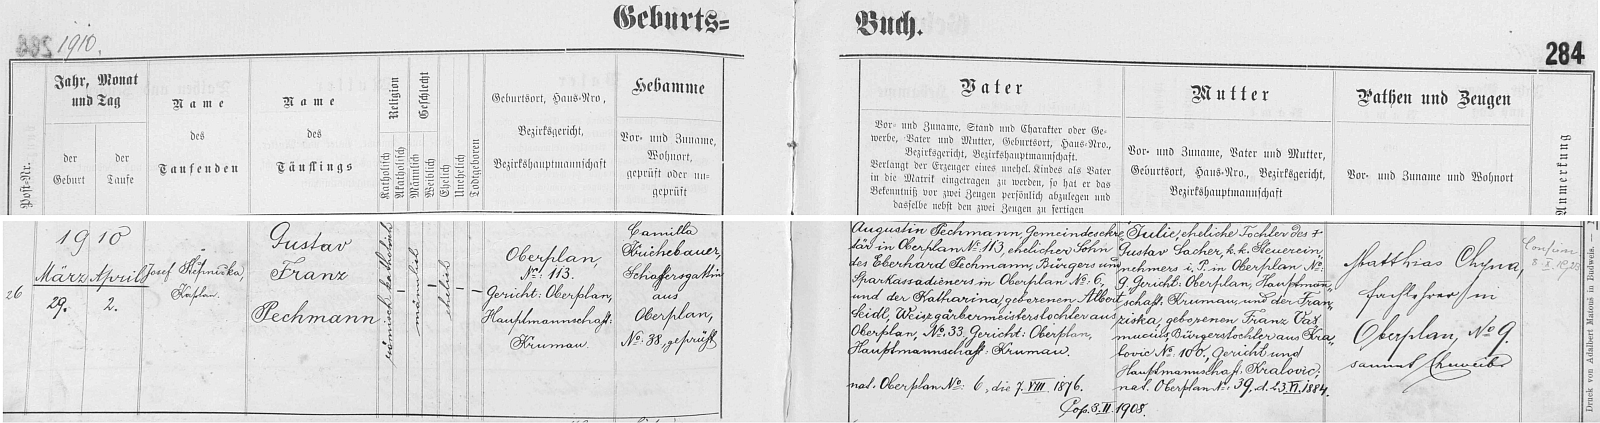 Geburts=
Buch.
1910.
284
Post-Nr.
Jahr, Monat
und Tag
der
Geburt
der
Taufe
Name
des
Taufenden
Name
des
Täuflings
Religion
Katholisch
Akatholisch
Geschlecht
Männlich
Weiblich
Ehelich
Unehelich
Todtgeboren
Geburtsort, Haus-Nro,
Bezirksgericht,
Bezirkshauptmannschaft
Hebamme
Vor- und Zuname,
Wohnort,
geprüft oder un-
geprüft
Vater
Vor- und Zuname, Stand und Charakter oder Ge-
werbe, Vater und Mutter, Geburtsort, Haus-Nro.,
Bezirksgericht, Bezirkshauptmannschaft.
Verlangt der Erzeuger eines unehel. Kindes als Vater
in die Matrik eingetragen zu werden, so hat er das
Bekenntniß vor zwei Zeugen persönlich abzulegen und
dasselbe nebst den zwei Zeugen zu fertigen
Mutter
Vor- und Zuname, Vater und Mutter,
Geburtsort, Haus-Nro., Bezirksgericht,
Bezirkshauptmannschaft
Pathen und Zeugen
Vor- und Zuname und Wohnort
Anmerkung
26
1910
März
29.
April
2.
Josef
Kaplan.
Gustav
Franz
Pechmann
römisch-katholisch
männlich
ehelich
Oberplan,
No. 113.
Gericht: Oberplan,
Hauptmannschaft:
Krumau.
Camilla
Kriehebauer,
Schaffersgattin
aus
Oberplan,
No: 38, geprüft
Augustin Pechmann, Gemeindesekre
tär in Oberplan No: 113, ehelicher Sohn
des Eberhard Pechmann, Bürgers und
Sparkassadieners in Oberplan No: 6,
und der Katharina, geborenen Albert
Seidl, Weißgärbermeisterstochter aus
Oberplan, No. 33, Gericht: Oberplan,
Hauptmannschaft: Krumau.
nat. Oberplan No: 6, die 7. VIII. 1876.
Julie, eheliche Tochter des †
Gustav Sacher, k. k. Steuerein-
nehmers i. P. in Oberplan No:
9, Gericht: Oberplan, Hauptman-
schaft: Krumau, und der Fran-
ziska, geborenen Franz
Bürgerstochter aus Kra-
lovic No: 100, Gericht und
Hauptmannschaft: Kralovic.
nat. Oberplan No: 39, d. 23. VI. 1884.
Cop. 3. II. 1908.
Matthias
Fachlehrer in
Oberplan, No 9.
sammt
Druck von Adalbert Matouš in Budweis.